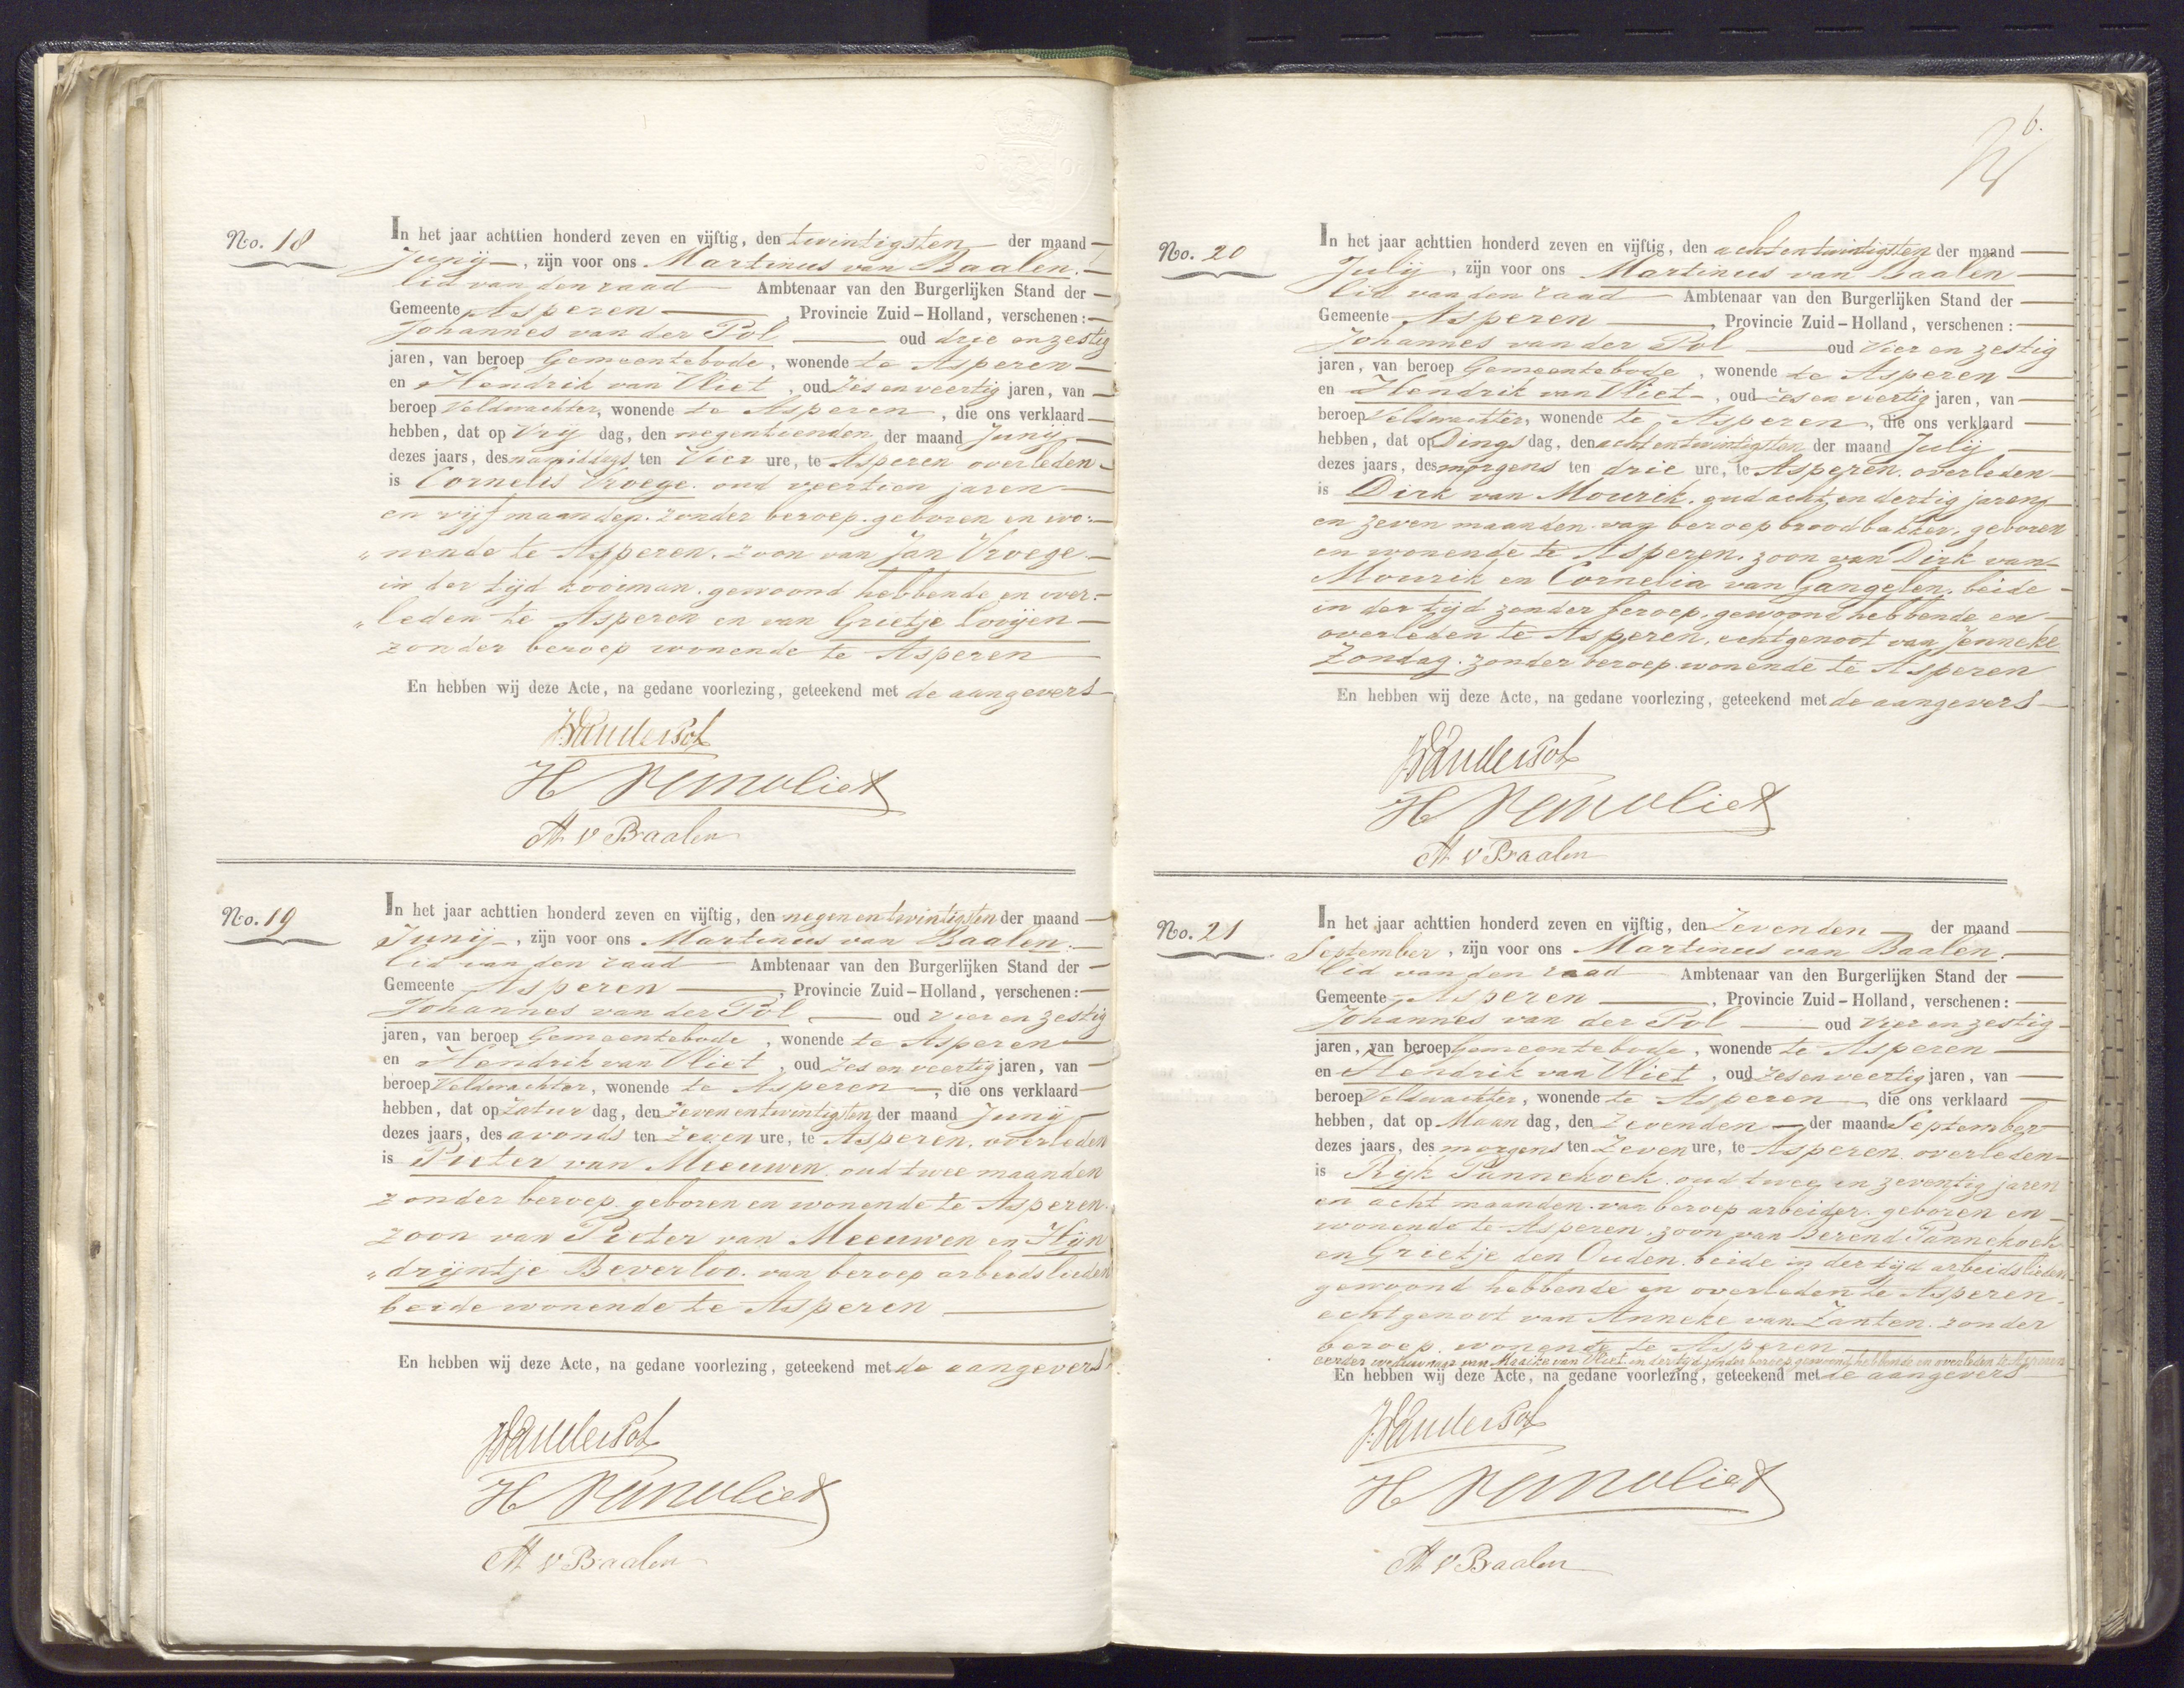 No. 18
In het jaar achttien honderd zeven en vijftig, den twintigsten der maand
Junij, zijn voor ons Martinus van Baalen.
lid van den raad Ambtenaar van den Burgerlijken Stand der
Gemeente Asperen, Provincie Zuid-Holland, verschenen:
Johannes van der Pol oud drie en zestig
jaren, van beroep Gemeentebode, wonende te Asperen
en Hendrik van Vliet, oud Zes en veertig jaren, van
beroep Veldwachter, wonende te Asperen, die ons verklaard
hebben, dat op Vrij dag, den negentienden der maand Junij
dezes jaars, des namiddags ten Vier ure, te Asperen overleden
is Cornelis Vroege. oud veertien jaren
en vijf maanden. zonder beroep. geboren en wo:
„nende te Asperen. zoon van Jan Vroege
in der tijd kooiman. gewoond hebbende en over:
„leden te Asperen en van Grietje Looijen
zonder beroep wonende te Asperen
En hebben wij deze Acte, na gedane voorlezing, geteekend met de aangevers
J. VanderPol
H Van Vliet
M. v Baalen
No. 19
In het jaar achttien honderd zeven en vijftig, den negen en twintigsten der maand
Junij, zijn voor ons Martinus van Baalen.
lid van den raad Ambtenaar van den Burgerlijken Stand der
Gemeente Asperen, Provincie Zuid-Holland, verschenen:
Johannes van der Pol oud vier en zestig
jaren, van beroep Gemeentebode, wonende te Asperen
en Hendrik van Vliet, oud Zes en veertig jaren, van
beroep Veldwachter, wonende te Asperen, die ons verklaard
hebben, dat op Zatur dag, den Zeven en twintigsten der maand Junij
dezes jaars, des avonds ten Zeven ure, te Asperen. overleden
is Pieter van Meeuwen. oud twee maanden
zonder beroep. geboren en wonende te Asperen.
zoon van Pieter van Meeuwen en Hijn
„drijntje Beverloo. van beroep arbeidslieden
beide wonende te Asperen
En hebben wij deze Acte, na gedane voorlezing, geteekend met de aangevers
J. VanderPol
H Van Vliet
M v Baalen
6.
No. 20
In het jaar achttien honderd zeven en vijftig, den acht en twintigsten der maand
Julij, zijn voor ons Martinus van Baalen
lid van den raad Ambtenaar van den Burgerlijken Stand der
Gemeente Asperen, Provincie Zuid-Holland, verschenen:
Johannes van der Pol oud Vier en zestig
jaren, van beroep Gemeentebode, wonende te Asperen
en Hendrik van Vliet, oud Zes en veertig jaren, van
beroep Veldwachter, wonende te Asperen, die ons verklaard
hebben, dat op Dings dag, den acht en twintigsten der maand Julij
dezes jaars, des morgens ten drie ure, te Asperen. overleden
is Dirk van Mourik. oud acht en dertig jaren
en zeven maanden. van beroep broodbakker, geboren
en wonende te Asperen. zoon van Dirk van
Mourik en Cornelia van Gangelen. beide
in der tijd zonder beroep. gewoond hebbende en
overleden te Asperen. echtgenoot van Jenneke
Zondag. zonder beroep. wonende te Asperen
En hebben wij deze Acte, na gedane voorlezing, geteekend met de aangevers
J. VanderPol
H Van Vliet
M v Baalen
No. 21
In het jaar achttien honderd zeven en vijftig, den Zevenden der maand
September, zijn voor ons Martinus van Baalen.
lid van den raad Ambtenaar van den Burgerlijken Stand der
Gemeente Asperen, Provincie Zuid-Holland, verschenen:
Johannes van der Pol oud Vier en zestig
jaren, van beroep Gemeentebode, wonende te Asperen
en Hendrik van Vliet, oud Zes en veertig jaren, van
beroep Veldwachter, wonende te Asperen die ons verklaard
hebben, dat op Maan dag, den Zevenden der maand September
dezes jaars, des morgens ten Zeven ure, te Asperen. overleden
is Rijk Pannekoek. oud twee en zeventig jaren
en acht maanden. van beroep arbeider. geboren en
wonende te Asperen. zoon van Berend Pannekoek
en Grietje den Ouden. beide in der tijd arbeidslieden
gewoond hebbende en overleden te Asperen.
echtgenoot van Anneke van Zanten. zonder
beroep. wonende te Asperen
eerder weduwnaar van Maaike van Vliet in der tijd zonder beroep gewoond hebbende en overleden te Asperen
En hebben wij deze Acte, na gedane voorlezing, geteekend met de aangevers
J. VanderPol
H Van Vliet
M v Baalen